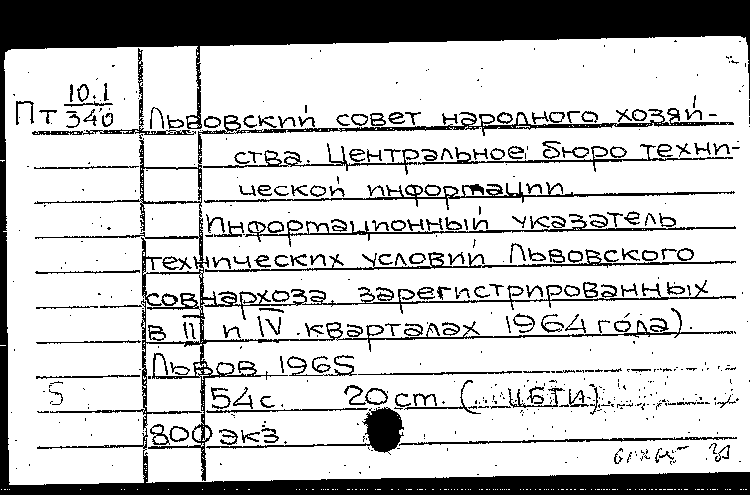 Пт 10.1/340 Львовский совет народного хозяй-
ства. Центральное бюро техни-
ческой информации.
Информационный указатель
технических условий Львовского
совнархоза, зарегистрированных
в II и IV кварталах 1964 года).
Львов, 1965
S 54 с. 20 ст. (... ЦБТИ)
800 экз.